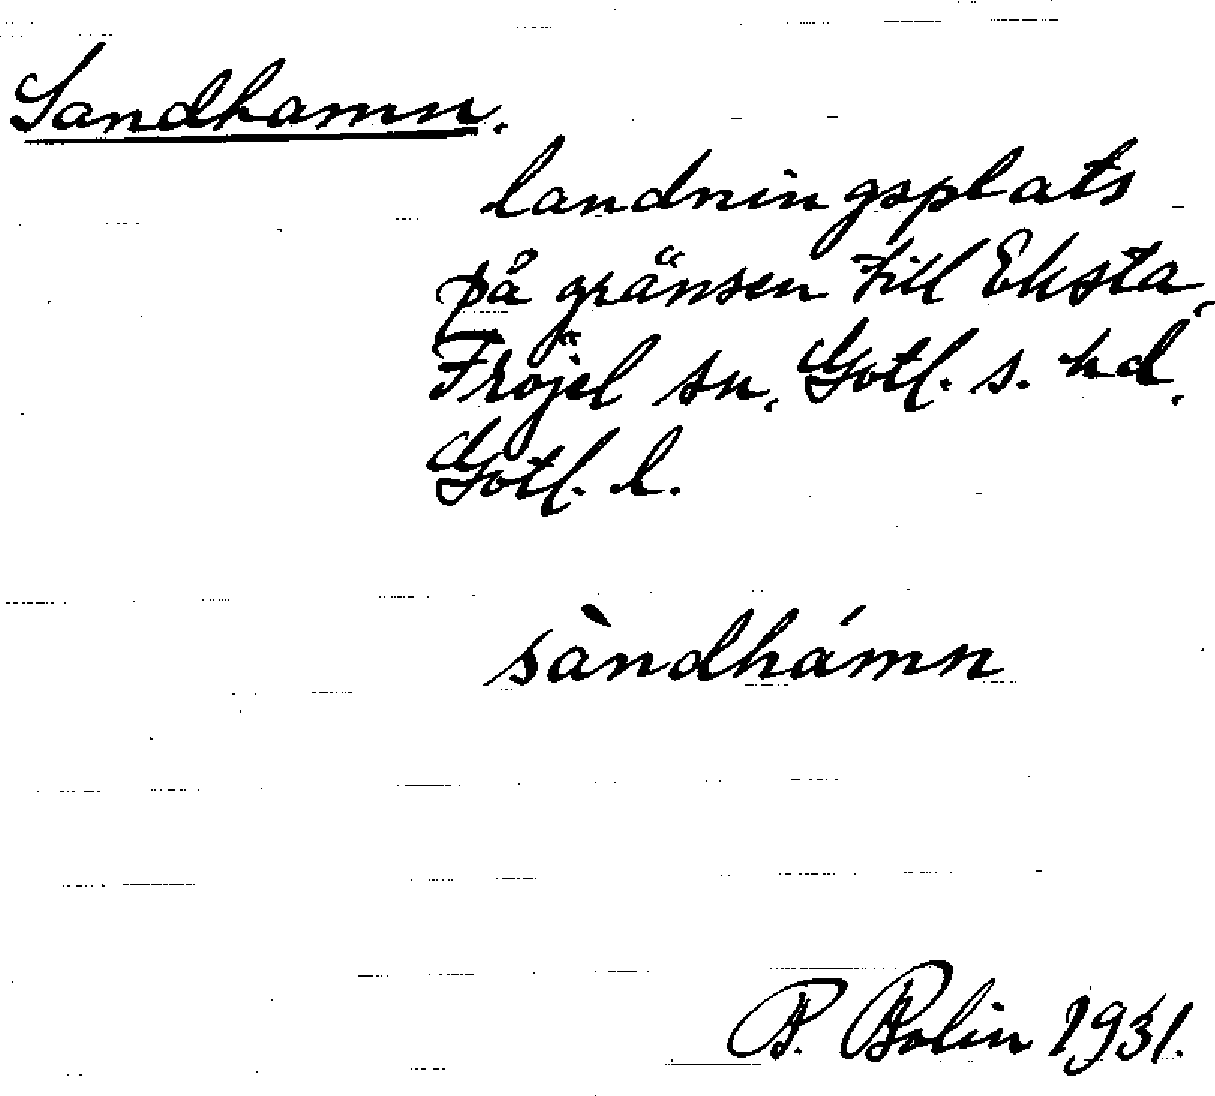 Sandhamn.
landningsplats
på gränsen till Eksta,
Fröjel sn, Gotl. s. hd,
Gotl. l.
sàndhámn
B. Bolin 1931.